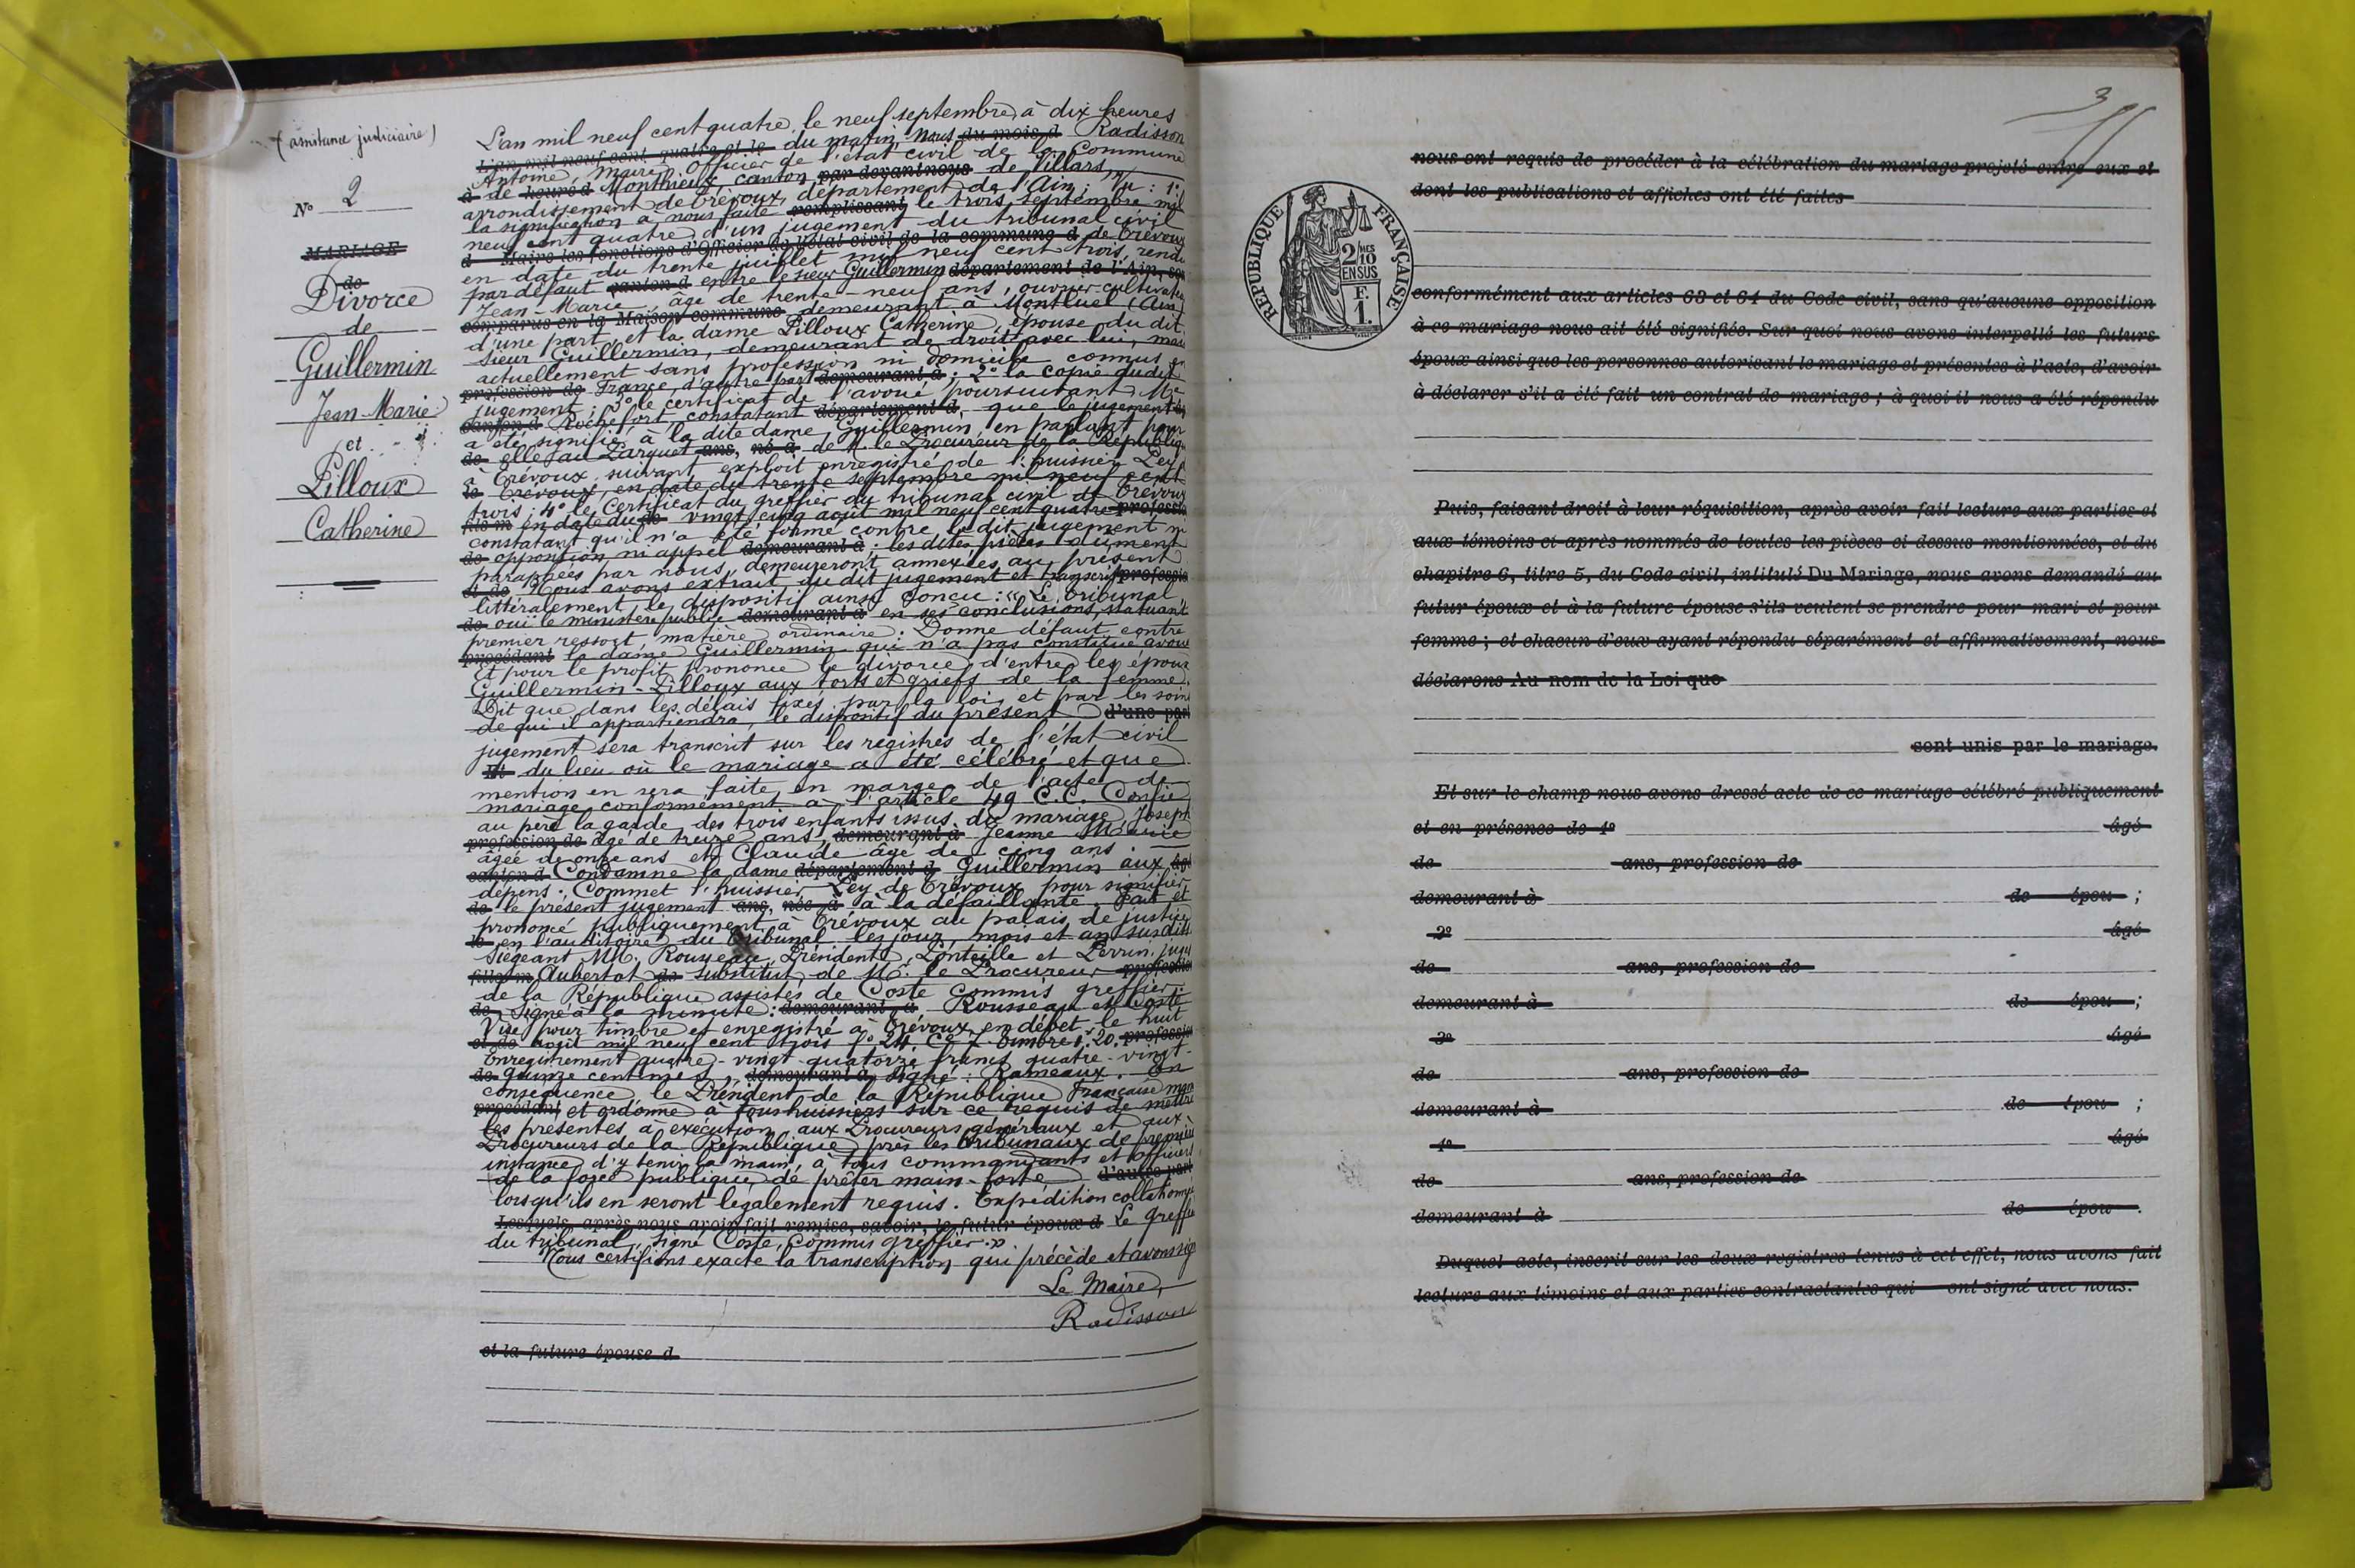 (assistance judiciaire)
N° 2
MARIAGE
de
Divorce
de
Guillermin
Jean-Marie
et
Pilloux
Catherine
L'an mil neuf cent quatre, le neuf septembre à dix heures
L'an mil neuf cent quatre et le du matin, Nous du mois d Radisson
Antoine, Maire, Officier de l'état civil de la Commune
à de heures d Monthieux, canton par devant nous de Villars,
arrondissement de Trévoux, département de l'Ain; Vu : 1°
la signification à nous faite remplissant le trois septembre mil
neuf cent quatre d'un jugement du tribunal civil
d Maire les fonctions d'Officier de l'état civil de la commune d de Trévoux
en date du trente juillet mil neuf cent trois, rendu
par défaut canton d entre le sieur Guillermin département de l'Ain, so
Jean-Marie, âgé de trente-neuf ans, ouvrier cultivateur
comparus en la Maison commune demeurant à Montluel (Ain)
d'une part, et la dame Pilloux Catherine, épouse du dit
sieur Guillermin, demeurant de droit avec lui, mais
actuellement sans profession ni domicile connus en
profession de France, d'autre part demeurant à ; 2° la copie dudit
jugement ; 3° le certificat de l'avoué poursuivant Me
canton d Rochefort, constatant département d que le jugement
a été signifié à la dite dame Guillermin en parlant pour
de elle au Parquet ans, né à de M. le Procureur de la République
à Trévoux suivant exploit enregistré de l'huissier Ley
le Trévoux, en date du trente septembre mil neuf cent
trois ; 4° le Certificat du greffier du tribunal civil de Trévoux
fils m en date du de vingt cinq août mil neuf cent quatre profession
constatant qu'il n'a été formé contre le dit jugement ni
de opposition ni appel demeurant à ; les dites pièces dûment
paraphées par nous, demeureront annexées au présent
et de Nous avons extrait du dit jugement et transcrit profession
littéralement le dispositif ainsi conçu : « Le Tribunal
de ouï le ministère public demeurant à en ses conclusions, statuant
premier ressort, matière ordinaire : Donne défaut contre
procédant la dame Guillermin qui n'a pas constitué avoué
Et pour le profit prononce le divorce d'entre les époux
Guillermin-Pilloux aux torts et griefs de la femme,
Dit que dans les délais fixés par la loi, et par les soins
de qui il appartiendra, le dispositif du présent d'une part
jugement sera transcrit sur les registres de l'état civil
Et du lieu où le mariage a été célébré et que
mention en sera faite en marge de l'acte de
mariage conformément à l'article 49 C.C. Confie
au père la garde des trois enfants issus du mariage, Joseph
profession de âgé de treize ans, demeurant à Jeanne Marie
âgée de onze ans et Claude âgé de cinq ans.
canton d Condamne la dame département d Guillermin aux âgé
dépens. Commet l'huissier Ley de Trévoux pour signifier
de le présent jugement ans, née à à la défaillante. Fait et
prononcé publiquement à Trévoux au palais de justice
le en l'auditoire du tribunal les jour, mois et an susdits
Siégeant MM. Rousseau, Président, Ponteille et Perrin, juges
fille m Aubertot de substitut de Mr. le Procureur profession
de la République assistés de Coste commis greffier.
de Signé à la minute : demeurant à Rousseau et Coste
Visé pour timbre et enregistré à Trévoux en débet le huit
et de août mil neuf cent trois f° 24. Ce 7. Timbre 1f.20. profession
Enregistrement quatre-vingt-quatorze francs quatre-vingt-
de quinze centimes, demeurant à Signé : Rameaux. En
conséquence, le Président de la République Française mande
procédant et ordonne à tous huissiers sur ce requis de mettre
les présentes à exécution, aux Procureurs généraux et aux
Procureurs de la République près les tribunaux de première
instance d'y tenir la main, à tous commandants et officiers
de la force publique, de prêter main-forte d'autre part
lorsqu'ils en seront légalement requis. Expédition collationnée
Lesquels, après nous avoir fait remise, savoir, le futur époux d Le Greffier
du tribunal, signé Coste, commis greffier. »
Nous certifions exacte la transcription qui précède et avons signé
Le Maire,
Radisson
et la future épouse d
3
RÉPUBLIQUE FRANÇAISE
2/10 MES
EN SUS
F.
1.
nous ont requis de procéder à la célébration du mariage projeté entre eux et
dont les publications et affiches ont été faites
conformément aux articles 63 et 64 du Code civil, sans qu'aucune opposition
à ce mariage nous ait été signifiée. Sur quoi nous avons interpellé les futurs
époux ainsi que les personnes autorisant le mariage et présentes à l'acte, d'avoir
à déclarer s'il a été fait un contrat de mariage ; à quoi il nous a été répondu
Puis, faisant droit à leur réquisition, après avoir fait lecture aux parties et
aux témoins ci-après nommés de toutes les pièces ci-dessus mentionnées, et du
chapitre 6, titre 5, du Code civil, intitulé Du Mariage, nous avons demandé au
futur époux et à la future épouse s'ils veulent se prendre pour mari et pour
femme ; et chacun d'eux ayant répondu séparément et affirmativement, nous
déclarons Au nom de la Loi que
sont unis par le mariage.
Et sur le champ nous avons dressé acte de ce mariage célébré publiquement
et en présence de 1° âgé
de ans, profession de
demeurant à de épou ;
2° âgé
de ans, profession de
demeurant à de épou ;
3° âgé
de ans, profession de
demeurant à de épou ;
4° âgé
de ans, profession de
demeurant à de épou .
Duquel acte, inscrit sur les deux registres tenus à cet effet, nous avons fait
lecture aux témoins et aux parties contractantes qui ont signé avec nous.